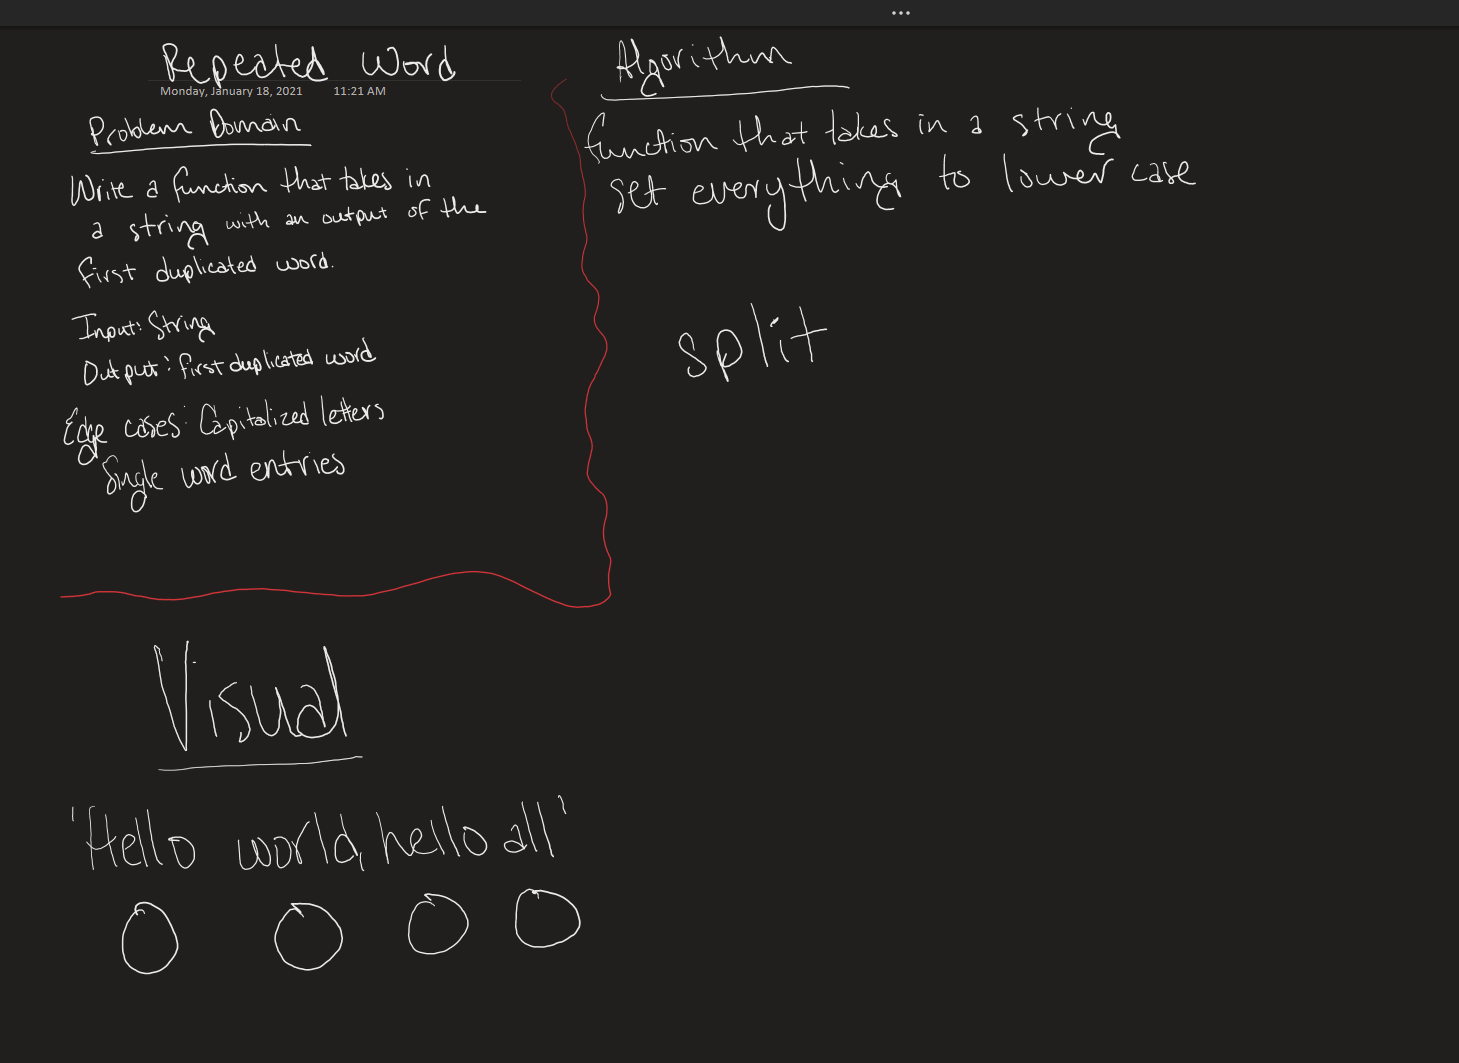 Repeated Word
Monday, January 18, 2021 11:21 AM
Problem Domain
Write a function that takes in
a string with an output of the
first duplicated word.
Input: String
Output: first duplicated word
Edge cases: Capitalized letters
Single word entries
Algorithm
function that takes in a string
set everything to lower case
split
Visual
'Hello world, hello all'